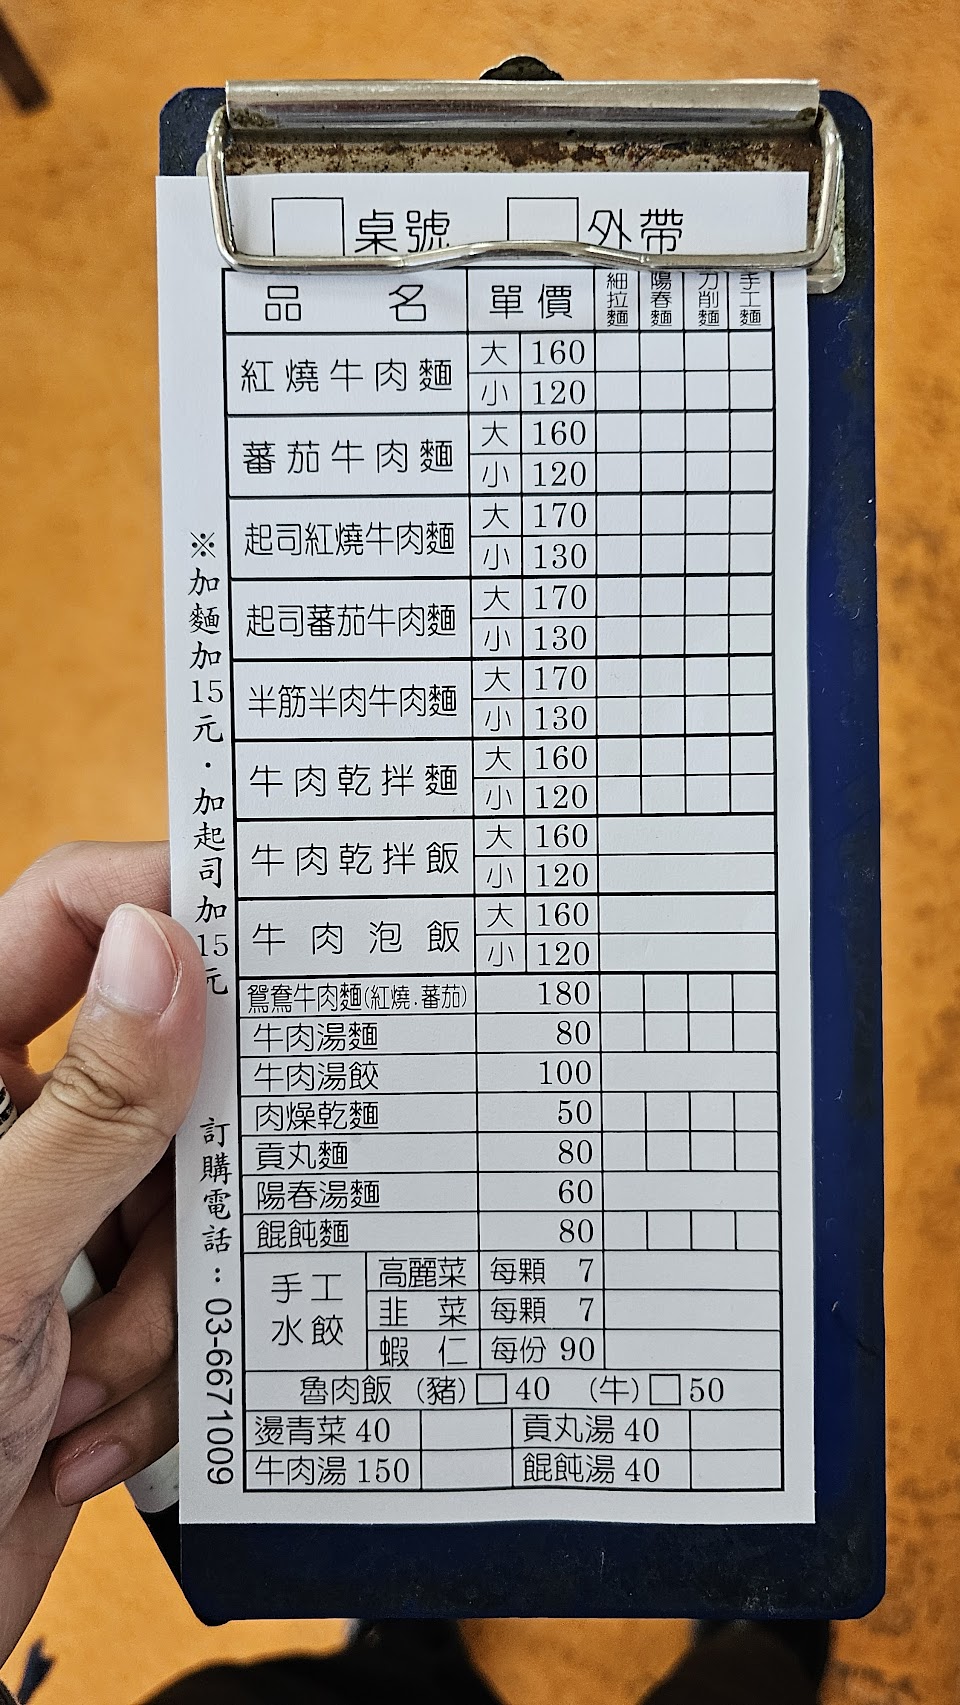 桌號 外帶
品名 單價 細拉麵 陽春麵 刀削麵 手工麵
紅燒牛肉麵 大 160
小 120
蕃茄牛肉麵 大 160
小 120
起司紅燒牛肉麵 大 170
小 130
起司蕃茄牛肉麵 大 170
小 130
半筋半肉牛肉麵 大 170
小 130
牛肉乾拌麵 大 160
小 120
牛肉乾拌飯 大 160
小 120
牛肉泡飯 大 160
小 120
鴛鴦牛肉麵(紅燒.蕃茄) 180
牛肉湯麵 80
牛肉湯餃 100
肉燥乾麵 50
貢丸麵 80
陽春湯麵 60
餛飩麵 80
手工水餃 高麗菜 每顆 7
韭菜 每顆 7
蝦仁 每份 90
魯肉飯 (豬) □ 40 (牛) □ 50
燙青菜 40 貢丸湯 40
牛肉湯 150 餛飩湯 40
※加麵加15元．加起司加15元
訂購電話：03-6671009